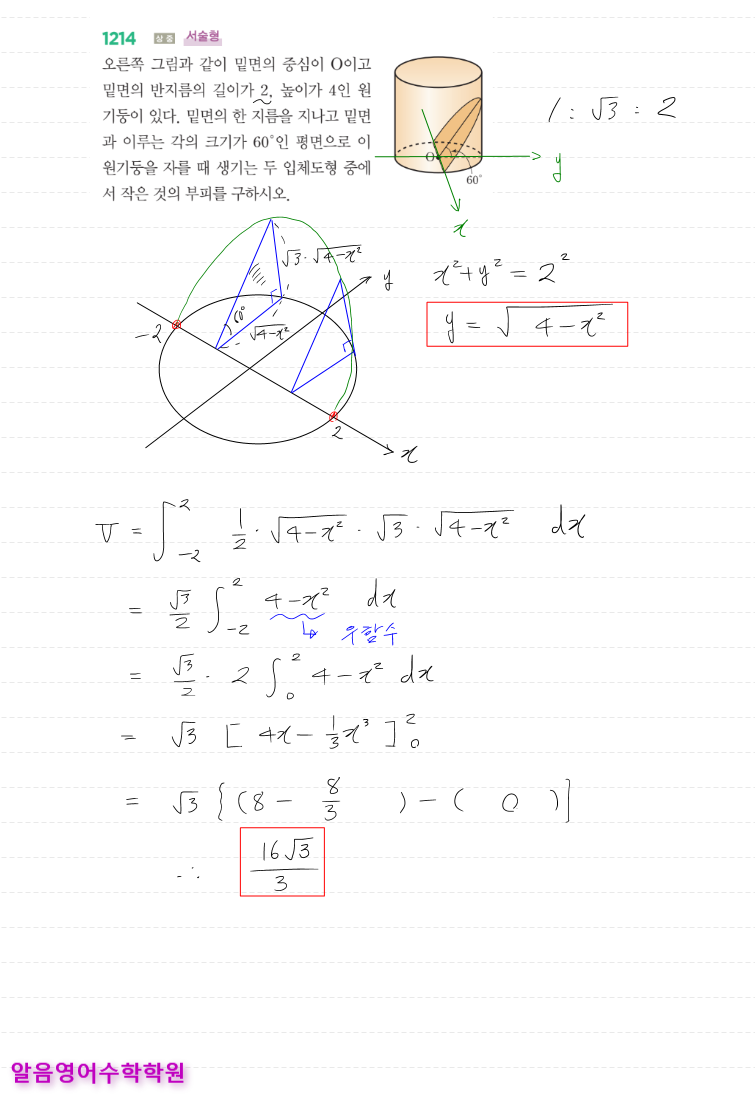 1214 상 중 서술형
오른쪽 그림과 같이 밑면의 중심이 O이고
밑면의 반지름의 길이가 2, 높이가 4인 원
기둥이 있다. 밑면의 한 지름을 지나고 밑면
과 이루는 각의 크기가 60°인 평면으로 이
원기둥을 자를 때 생기는 두 입체도형 중에
서 작은 것의 부피를 구하시오.
O
60°
y
x
1 : √3 : 2
√3 · √(4-x²)
60°
√(4-x²)
y
-2
2
x
x² + y² = 2²
y = √(4-x²)
V = ∫_{-2}^{2} 1/2 · √(4-x²) · √3 · √(4-x²) dx
= √3/2 ∫_{-2}^{2} 4-x² dx
↳ 우함수
= √3/2 · 2 ∫_{0}^{2} 4-x² dx
= √3 [ 4x - 1/3 x³ ]_{0}^{2}
= √3 { (8 - 8/3 ) - ( 0 ) ]
∴ 16√3/3
알음영어수학학원